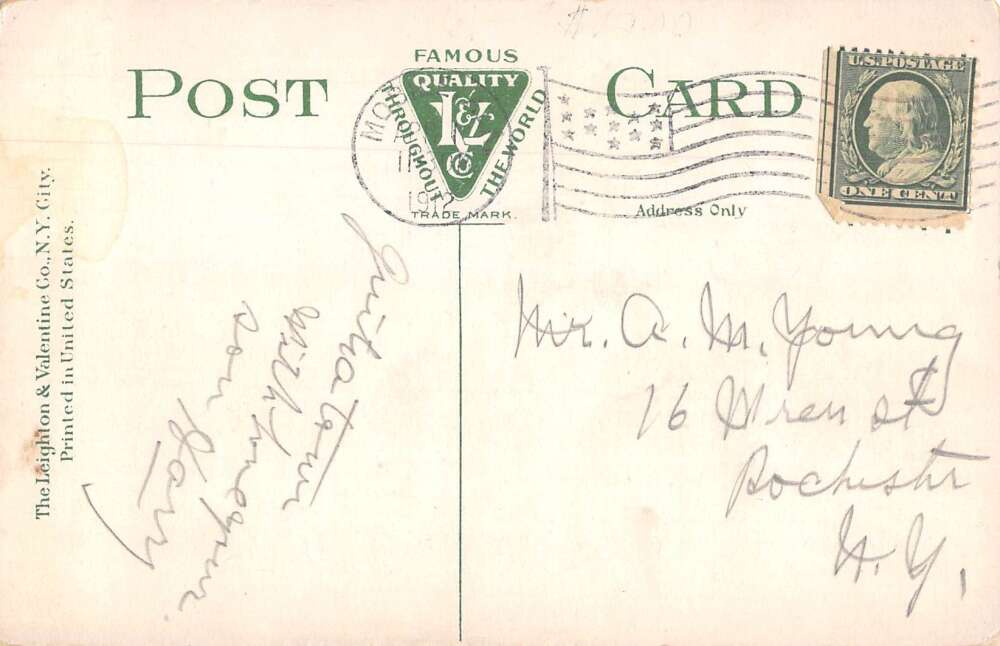 POST CARD
FAMOUS
QUALITY
THROUGHOUT
THE WORLD
L&V
Co
TRADE MARK.
1912
U.S. POSTAGE
ONE CENT
Address Only
The Leighton & Valentine Co., N.Y. City.
Printed in United States.
Just a town
with
son Harry
Mr. A. M. Young
16 Wren St
Rochester
N. Y.